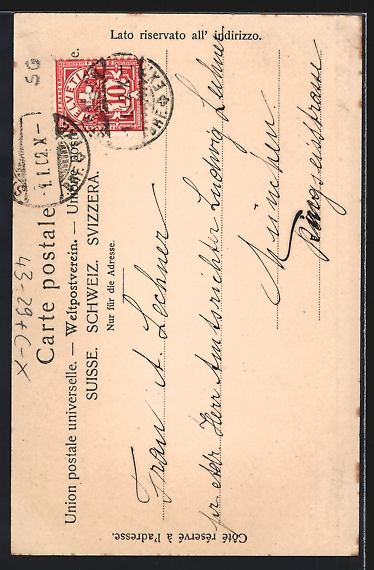 Carte postale
Union postale universelle. — Weltpostverein. — Unione postale
SUISSE. SCHWEIZ. SVIZZERA.
Nur für die Adresse.
Lato riservato all' indirizzo.
Côté réservé à l'adresse.
HELVETIA
10
1.I.02.X-
Frau A. Lechner
pr adr Herr Amtsrichter Ludwig Lechner
München
43-29+C-X
SG